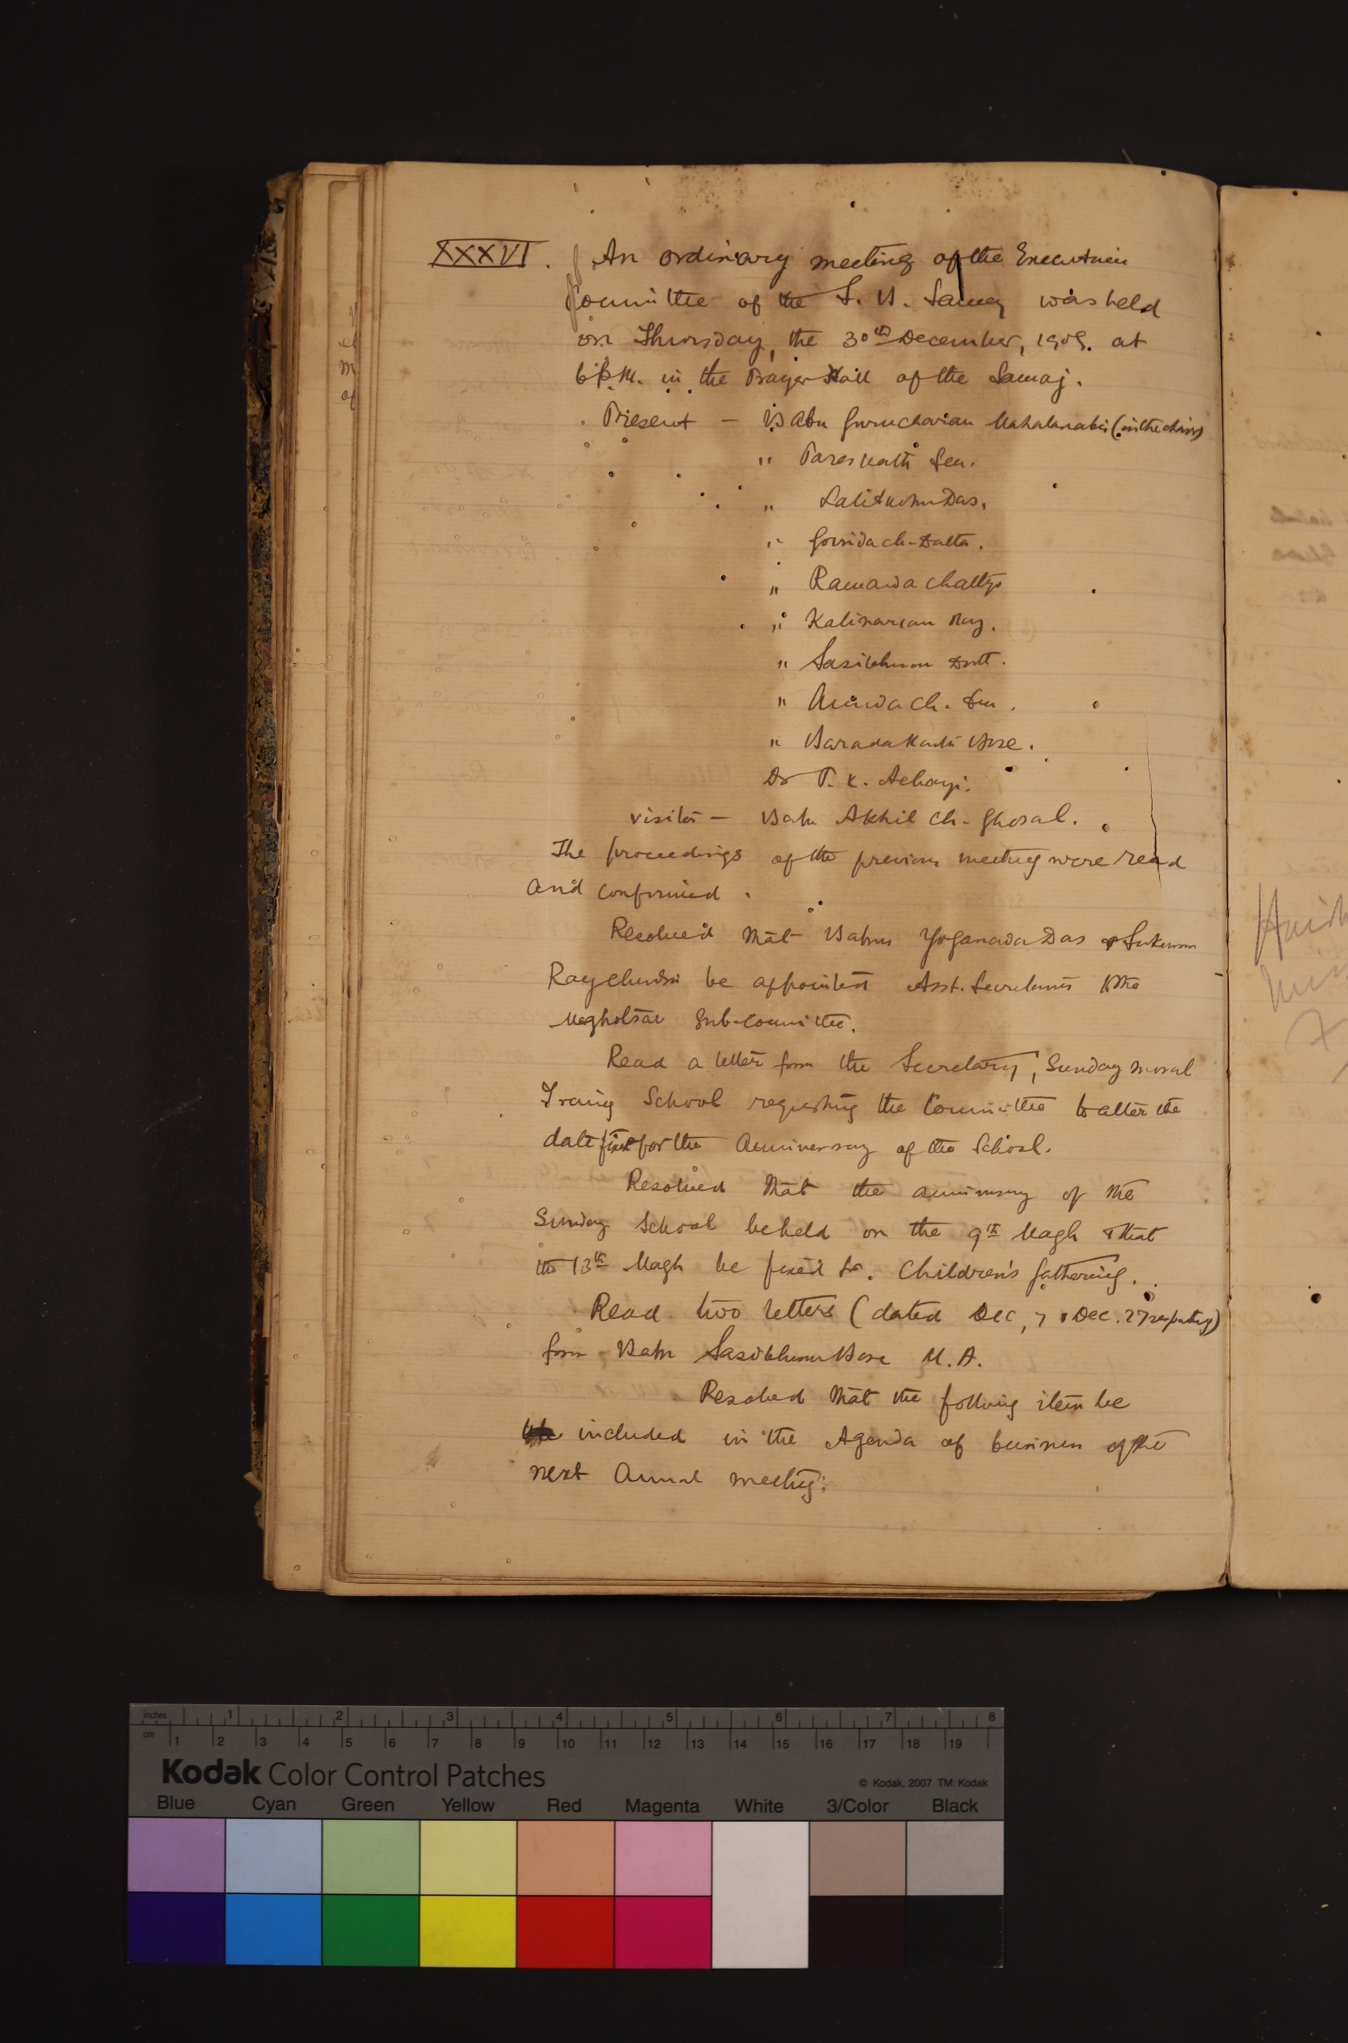 XXXVI. An ordinary meeting of the Executive
Committee of the S. B. Samaj was held
on Thursday, the 30th December, 1909. at
6 P.M. in the Prayer Hall of the Samaj.
Present — Babu Guruchavan Mahalanabis (in the chair)
" Paresnath Sen.
" Lalitmohun Das.
" Govinda Ch. Datta.
" Ramanda Chattye
" Kalinarian Ray.
" Sasibhusan Dutt.
" Ananda Ch. Sen.
" Barada Kanta Bose.
Dr P. K. Acharji.
visitor — Babu Akhil Ch. Ghosal.
The proceedings of the previous meeting were read
and confirmed.
Resolved that Babus Yogananda Das & Sukumar
Raychudri be appointed Asst. Secretaries to the
Maghotsav Sub-Committee.
Read a letter from the Secretary, Sunday Moral
Traing School requesting the Committee to alter the
date fixed for the Anniversary of the School.
Resolved that the anniversary of the
Sunday School be held on the 9th Magh & that
the 13th Magh be fixed for Children's gathering.
Read two letters (dated Dec, 7 & Dec. 27 respectively)
from Babu Sasibhusan Bose M. A.
Resolved that the following item be
included in the Agenda of business of the
next Annual meeting:
inches 1 2 3 4 5 6 7 8
cm 1 2 3 4 5 6 7 8 9 10 11 12 13 14 15 16 17 18 19
Kodak Color Control Patches © Kodak, 2007 TM: Kodak
Blue Cyan Green Yellow Red Magenta White 3/Color Black